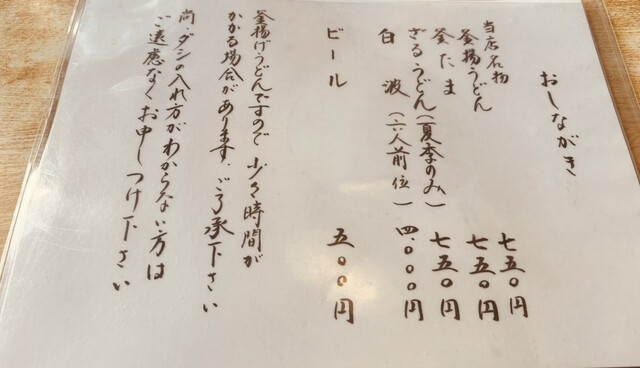 おしながき
当店名物
釜揚うどん 七五〇円
釜たま 七五〇円
ざるうどん(夏季のみ) 七五〇円
白波(六人前位) 四、〇〇〇円
ビール 五〇〇円
釜揚げうどんですので少々時間が
かかる場合があります。ご了承下さい
尚、ダシの入れ方がわからない方は
ご遠慮なくお申しつけ下さい